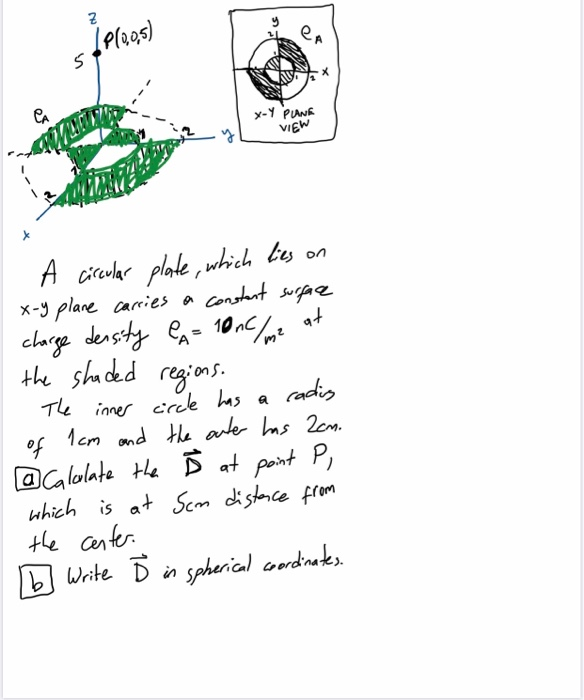 z
P(0,0,5)
5
ρA
1
1
2
2
y
x
y
2
ρA
1
1
2
x
x-y PLANE
VIEW
A circular plate, which lies on
x-y plane carries a constant surface
charge density ρA = 10nC/m² at
the shaded regions.
The inner circle has a radius
of 1cm and the outer has 2cm.
a Calculate the D⃗ at point P,
which is at 5cm distance from
the center.
b Write D⃗ in spherical coordinates.